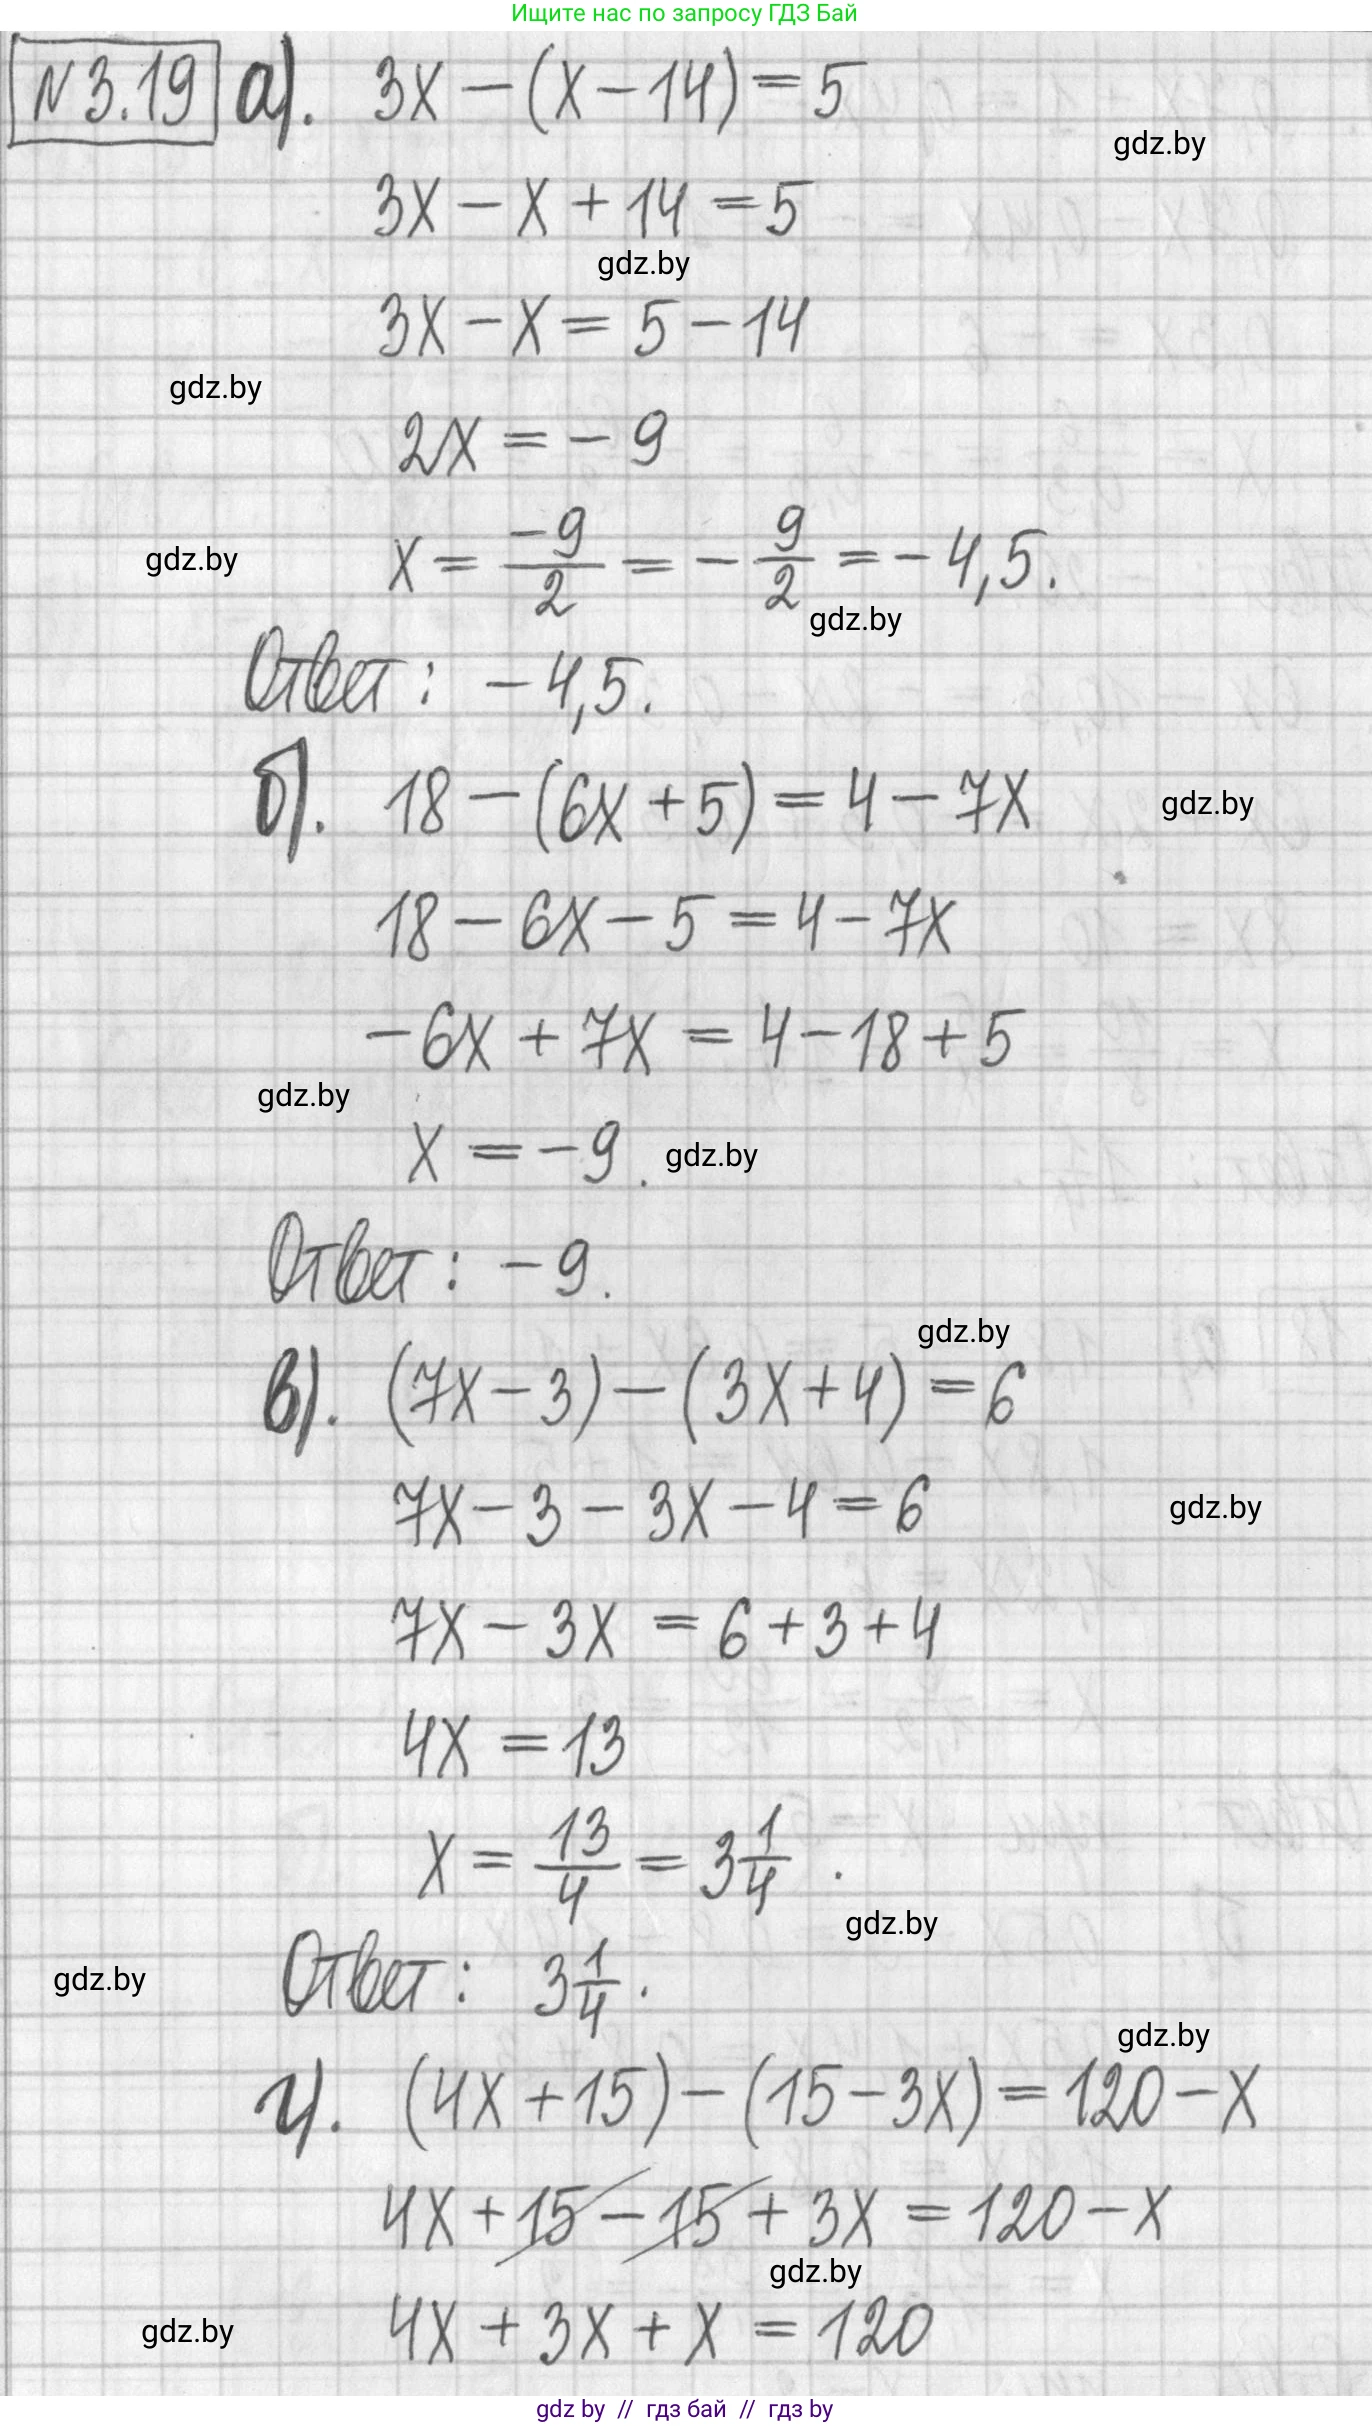 Ищите нас по запросу ГДЗ Бай
№3.19 а). 3x − (x − 14) = 5
gdz.by
3x − x + 14 = 5
gdz.by
3x − x = 5 − 14
gdz.by
2x = − 9
gdz.by
x = −9/2 = − 9/2 = − 4,5.
gdz.by
Ответ: − 4,5.
б). 18 − (6x + 5) = 4 − 7x
gdz.by
18 − 6x − 5 = 4 − 7x
− 6x + 7x = 4 − 18 + 5
gdz.by
x = − 9.
gdz.by
Ответ: − 9.
gdz.by
в). (7x − 3) − (3x + 4) = 6
7x − 3 − 3x − 4 = 6
gdz.by
7x − 3x = 6 + 3 + 4
4x = 13
x = 13/4 = 3 1/4.
gdz.by
Ответ: 3 1/4.
gdz.by
gdz.by
г). (4x + 15) − (15 − 3x) = 120 − x
4x + 15 − 15 + 3x = 120 − x
gdz.by
4x + 3x + x = 120
gdz.by
gdz by // гдз бай // гдз by